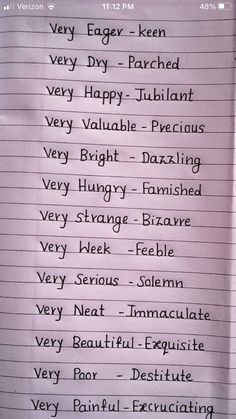 Verizon 11:12 PM 48%
Very Eager - keen
Very Dry - Parched
Very Happy - Jubilant
Very Valuable - Precious
Very Bright - Dazzling
Very Hungry - Famished
Very strange - Bizarre
Very Week - Feeble
Very Serious - Solemn
Very Neat - Immaculate
Very Beautiful - Exquisite
Very Poor - Destitute
Very Painful - Excruciating